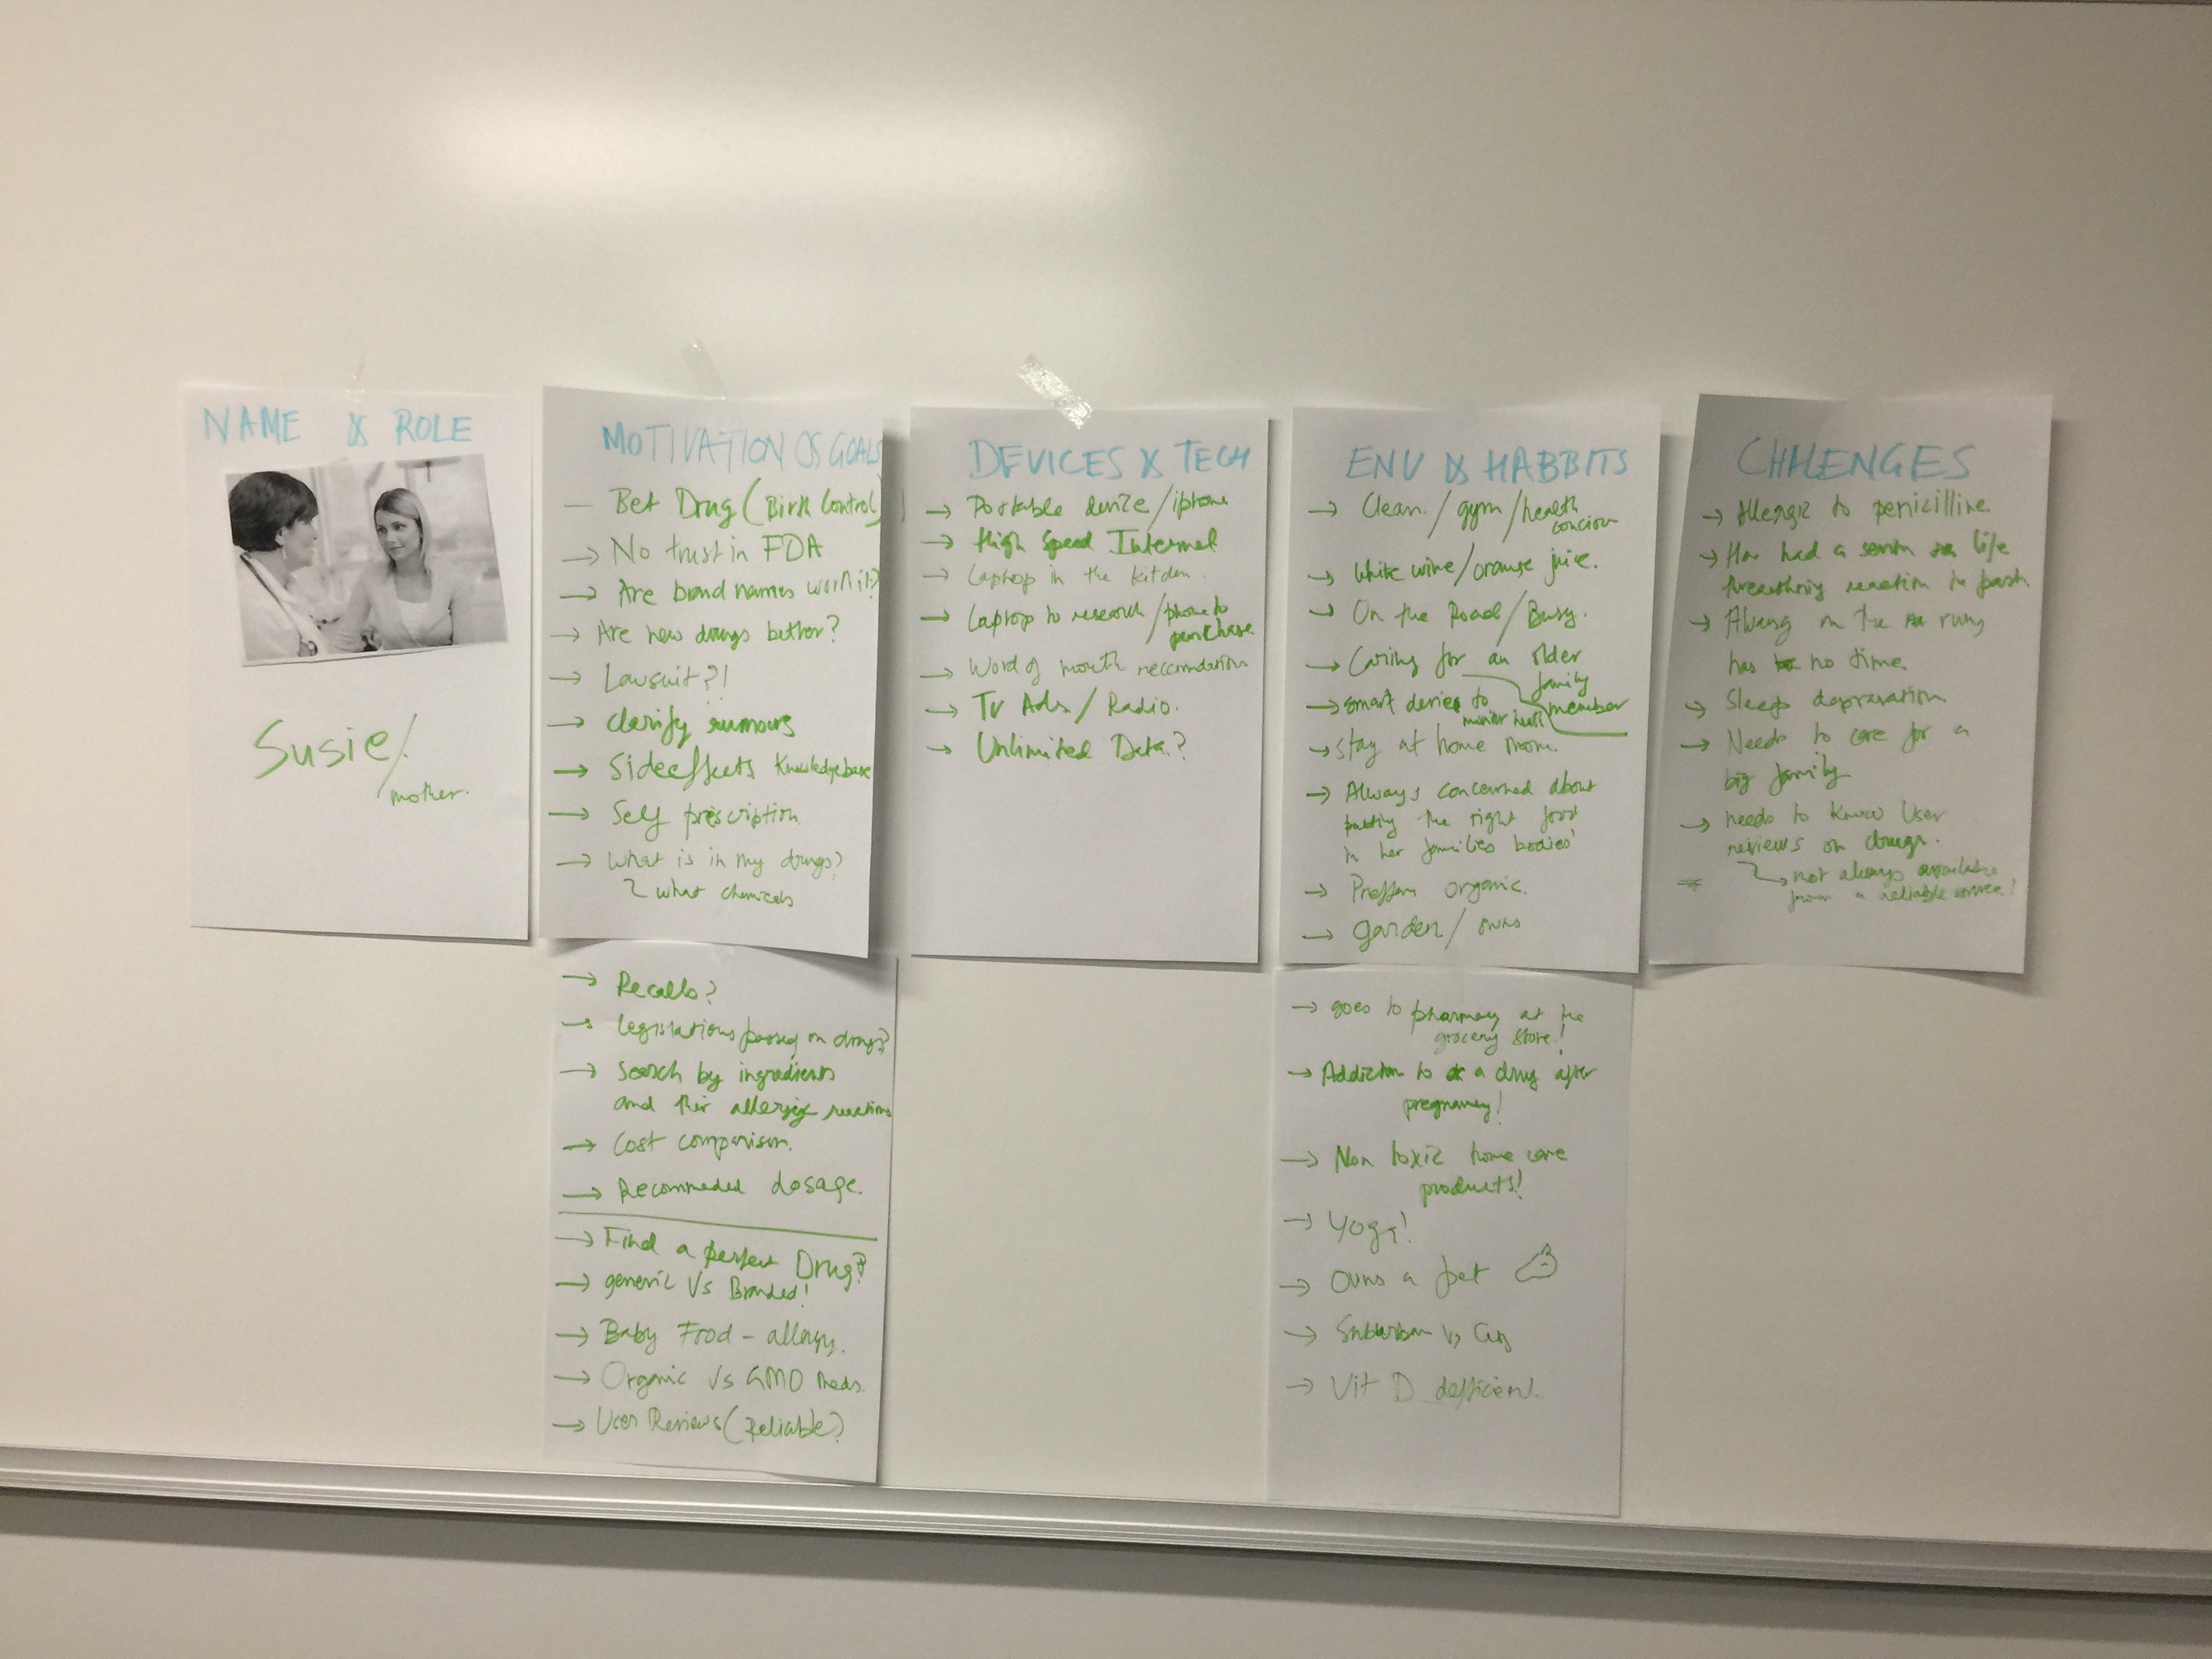 NAME & ROLE
Susie/
mother.
MOTIVATION & GOALS
— Bet Drug (Birth Control)
→ No trust in FDA
→ Are brand names worth it?
→ Are new drugs better?
→ Lawsuit?!
→ clarify rumours
→ Sideeffects Knowledgebase
→ Self prescription
→ What is in my drugs?
what chemicals
→ Recalls?
→ legislations passed on drugs?
→ Search by ingredients
and their allergic reactions
→ Cost comparison.
→ Recommeded dosage.
→ Find a perfect Drug?
→ generic Vs Branded!
→ Baby Food - allergy.
→ Organic Vs GMO meds.
→ User Reviews (Reliable?)
DEVICES & TECH
→ Portable device/iphone
→ High Speed Internet
→ Laptop in the kitchen.
→ Laptop to research/phone to
purchase
→ Word of mouth
→ Tv Ads/Radio.
→ Unlimited Data?
ENV & HABBITS
→ Clean/gym/health
→ White wine/orange juice.
→ On the Road/Busy.
→ Caring for an older
family
member
→ smart device to
monitor health
→ stay at home mom.
→ Always concerned about
putting the right food
in her families bodies'
→ organic.
→ garden/owns
→ goes to pharmacy at the
grocery store!
→ Addiction to a drug after
pregnancy!
→ Non toxic home care
products!
→ Yoga!
→ Owns a pet
→ Suburban Vs City
→ Vit D defficient.
CHALENGES
→ Allergic to penicilline
→ Has had a life
reaction in past.
→ Always on the run,
has no time.
→ Sleep depravation
→ Needs to care for a
big family
→ needs to know User
reviews on drugs.
→ not always available
from a reliable source!